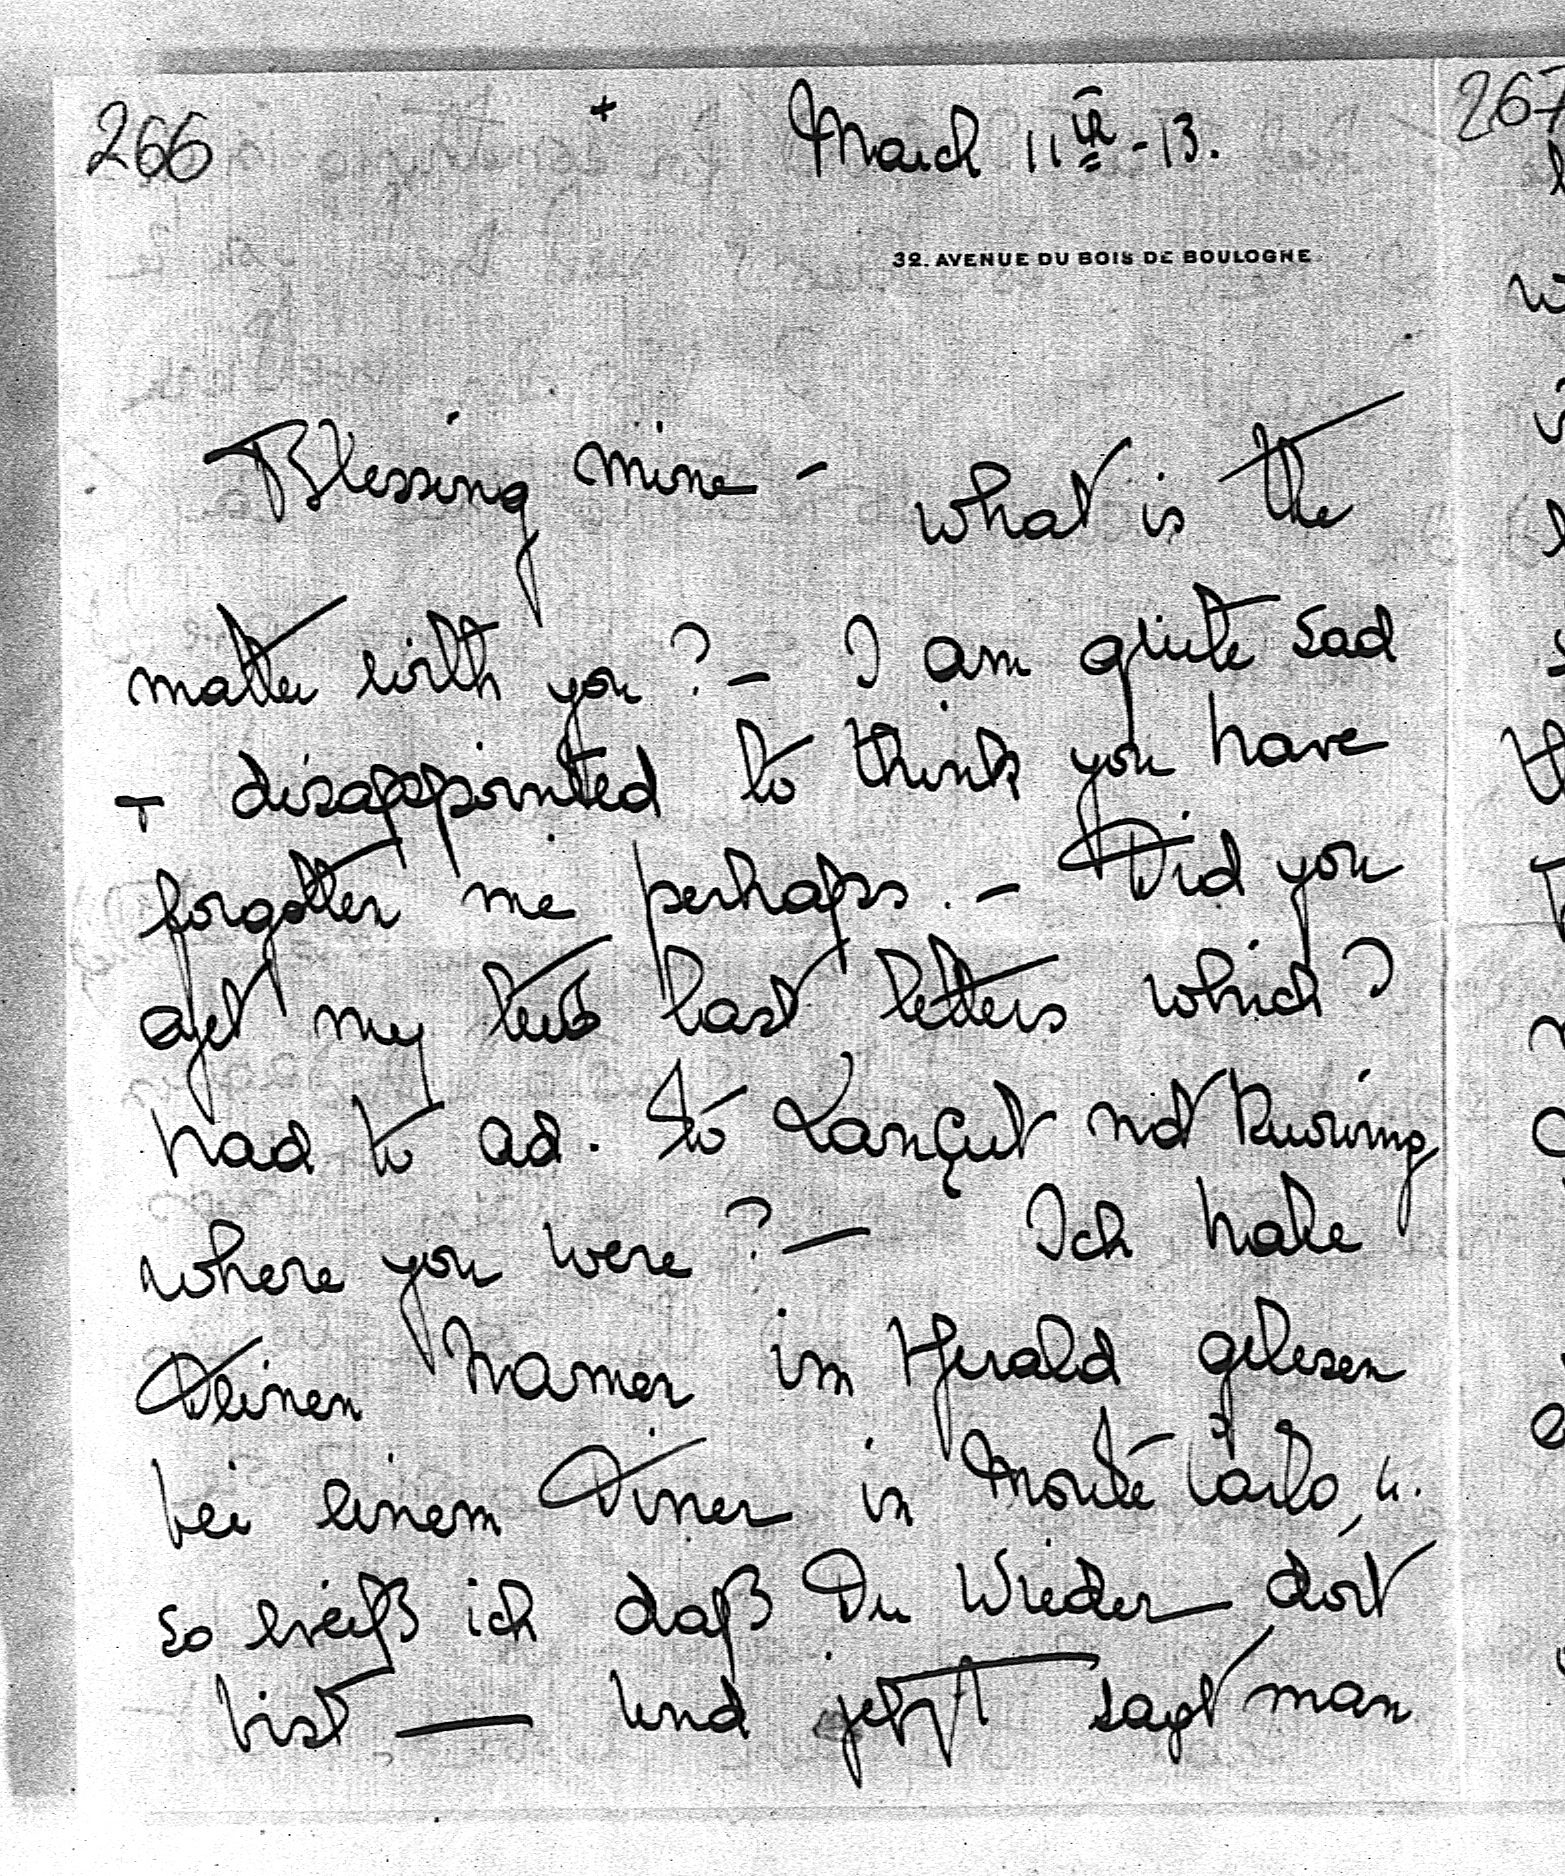 266 + March 11th - 13.
32. AVENUE DU BOIS DE BOULOGNE
Blessing mine - what is the
matter with you? - I am quite sad
+ disappointed to think you have
forgotten me perhaps. - Did you
get my two last letters which I
had to ad. to Lançut not knowing
where you were? - Ich habe
Deinen Namen im Herald gelesen
bei einem Diner in Monte Carlo, u.
so weiß ich daß Du wieder dort
bist — und jetzt sagt man
267